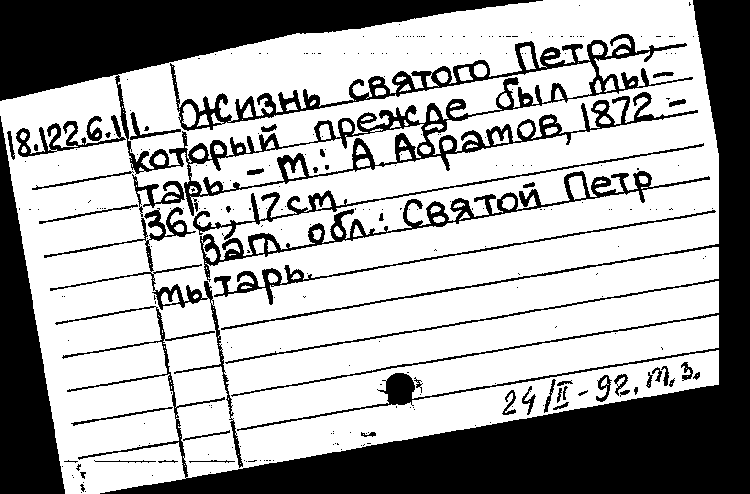 18.122.6.111. Жизнь святого Петра,
который прежде был мы-
тарь. - М.: А. Абрамов, 1872. -
36 с.; 17 см.
Загл. обл.: Святой Петр
мытарь.
24/II - 92. М.З.